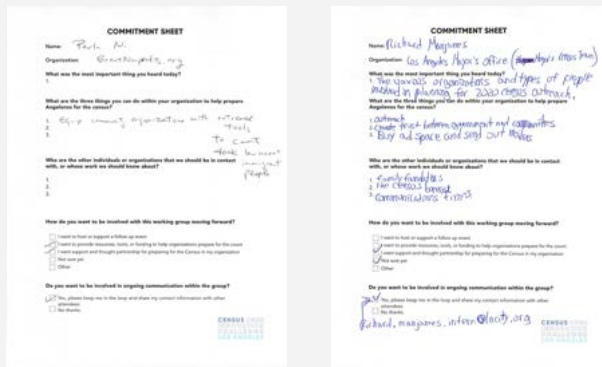 COMMITMENT SHEET
Name: N.
Organization:
What was the most important thing you heard today?
1.
What are the three things you can do within your organization to help prepare
Angelenos for the census?
1. Equip community organizations with
2. tools
3.
to count
people
Who are the other individuals or organizations that we should be in contact
with, or whose work we should know about?
1.
2.
3.
How do you want to be involved with this working group moving forward?
I want to host or support a follow up event
I want to provide resources, tools, or funding to help organizations prepare for the count
I want support and thought partnership for preparing for the Census in my organization
Not sure yet
Other
Do you want to be involved in ongoing communication within the group?
Yes, please keep me in the loop and share my contact information with other
attendees
No thanks
CENSUS
CHALLENGE
LOS ANGELES
COMMITMENT SHEET
Name: Richard
Organization: Los Angeles Mayor's Office
What was the most important thing you heard today?
1. The various organizations and types of people
involved in planning for 2020 census outreach.
What are the three things you can do within your organization to help prepare
Angelenos for the census?
1. outreach
2. Create trust between government and communities
3. Buy ad space and send out
Who are the other individuals or organizations that we should be in contact
with, or whose work we should know about?
1.
2. The census bureau
3. Communications firms
How do you want to be involved with this working group moving forward?
I want to host or support a follow up event
I want to provide resources, tools, or funding to help organizations prepare for the count
I want support and thought partnership for preparing for the Census in my organization
Not sure yet
Other
Do you want to be involved in ongoing communication within the group?
Yes, please keep me in the loop and share my contact information with other
attendees
No thanks
CENSUS
CHALLENGE
LOS ANGELES